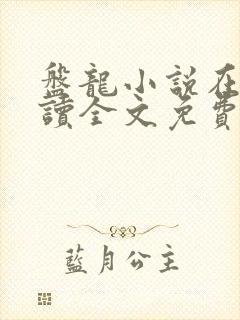 盤龍小說在
讀全文免費
藍月公主